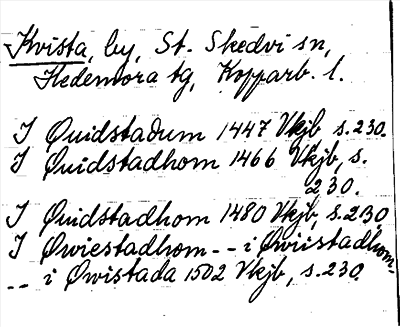 Kvista, by, St. Skedvi sn,
Hedemora tg, Kopparb. l.
I Quidstadum 1447 Vkjb s. 230.
I Quidstadhom 1466 Vkjb, s.
230.
I Quidstadhom 1480 Vkjb, s. 230.
I Qwiestadhom -- i Qwiistadhom
-- i Qwistada 1502 Vkjb, s. 230.